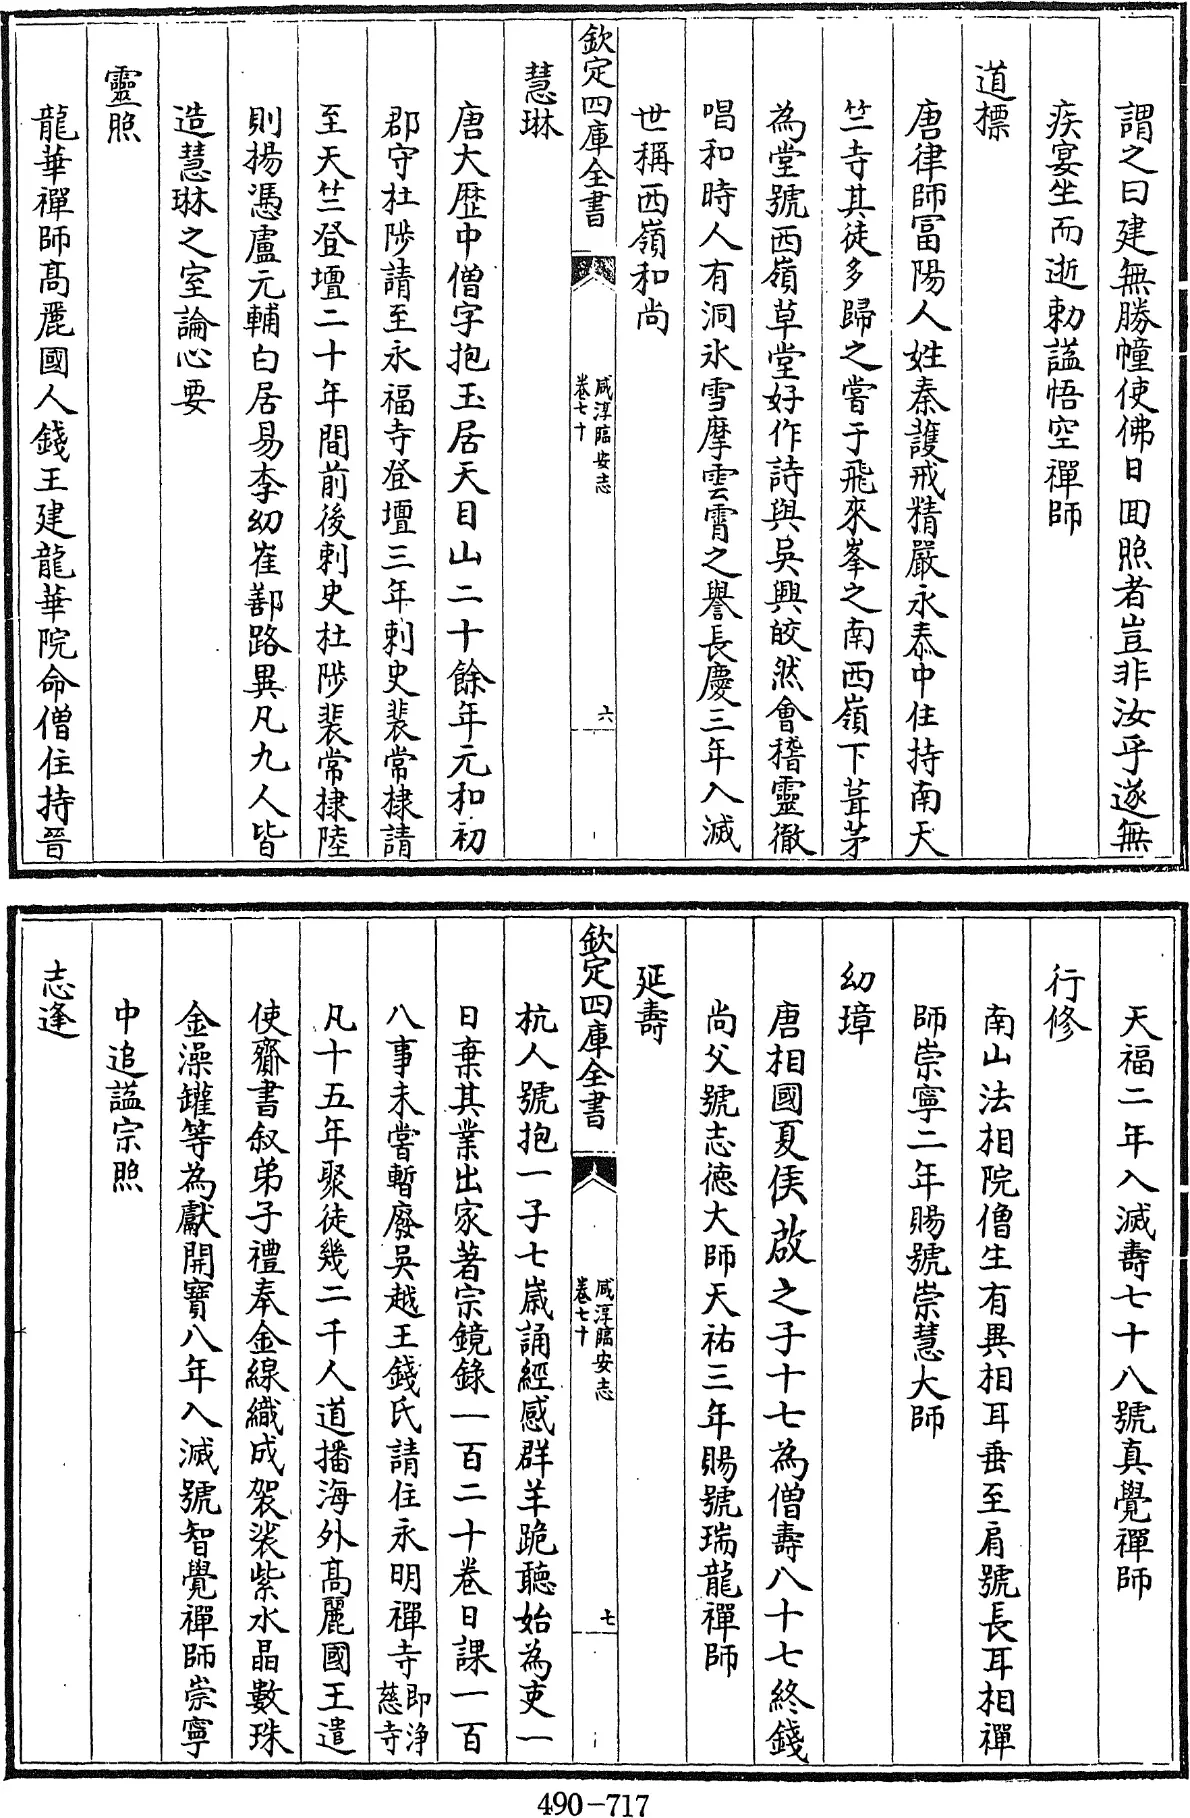 謂之曰建無勝幢使佛日囬照者豈非汝乎遂無
疾宴坐而逝勅諡悟空禪師
道標
唐律師富陽人姓秦護戒精嚴永泰中住持南天
竺寺其徒多歸之嘗于飛來峯之南西嶺下葺茅
為堂號西嶺草堂好作詩與吳興皎然會稽靈徹
唱和時人有洞氷雪摩雲霄之譽長慶三年入滅
世稱西嶺和尚
欽定四庫全書
咸淳臨安志
卷七十
六
慧琳
唐大歴中僧字抱玉居天目山二十餘年元和初
郡守杜陟請至永福寺登壇三年刺史裴常棣請
至天竺登壇二十年間前後刺史杜陟裴常棣陸
則揚憑盧元輔白居易李幼崔鄯路異凡九人皆
造慧琳之室論心要
靈照
龍華禪師髙麗國人錢王建龍華院命僧住持晉
天福二年入滅壽七十八號真覺禪師
行修
南山法相院僧生有異相耳垂至肩號長耳相禪
師崇寧二年賜號崇慧大師
幼璋
唐相國夏侯啟之子十七為僧壽八十七終錢
尚父號志德大師天祐三年賜號瑞龍禪師
延壽
欽定四庫全書
咸淳臨安志
卷七十
七
杭人號抱一子七歲誦經感群羊跪聽始為吏一
日棄其業出家著宗鏡錄一百二十卷日課一百
八事未嘗暫廢吳越王錢氏請住永明禪寺即淨慈寺
凡十五年聚徒幾二千人道播海外髙麗國王遣
使齎書叙弟子禮奉金線織成袈裟紫水晶數珠
金澡罐等為獻開寶八年入滅號智覺禪師崇寧
中追諡宗照
志逢
490-717